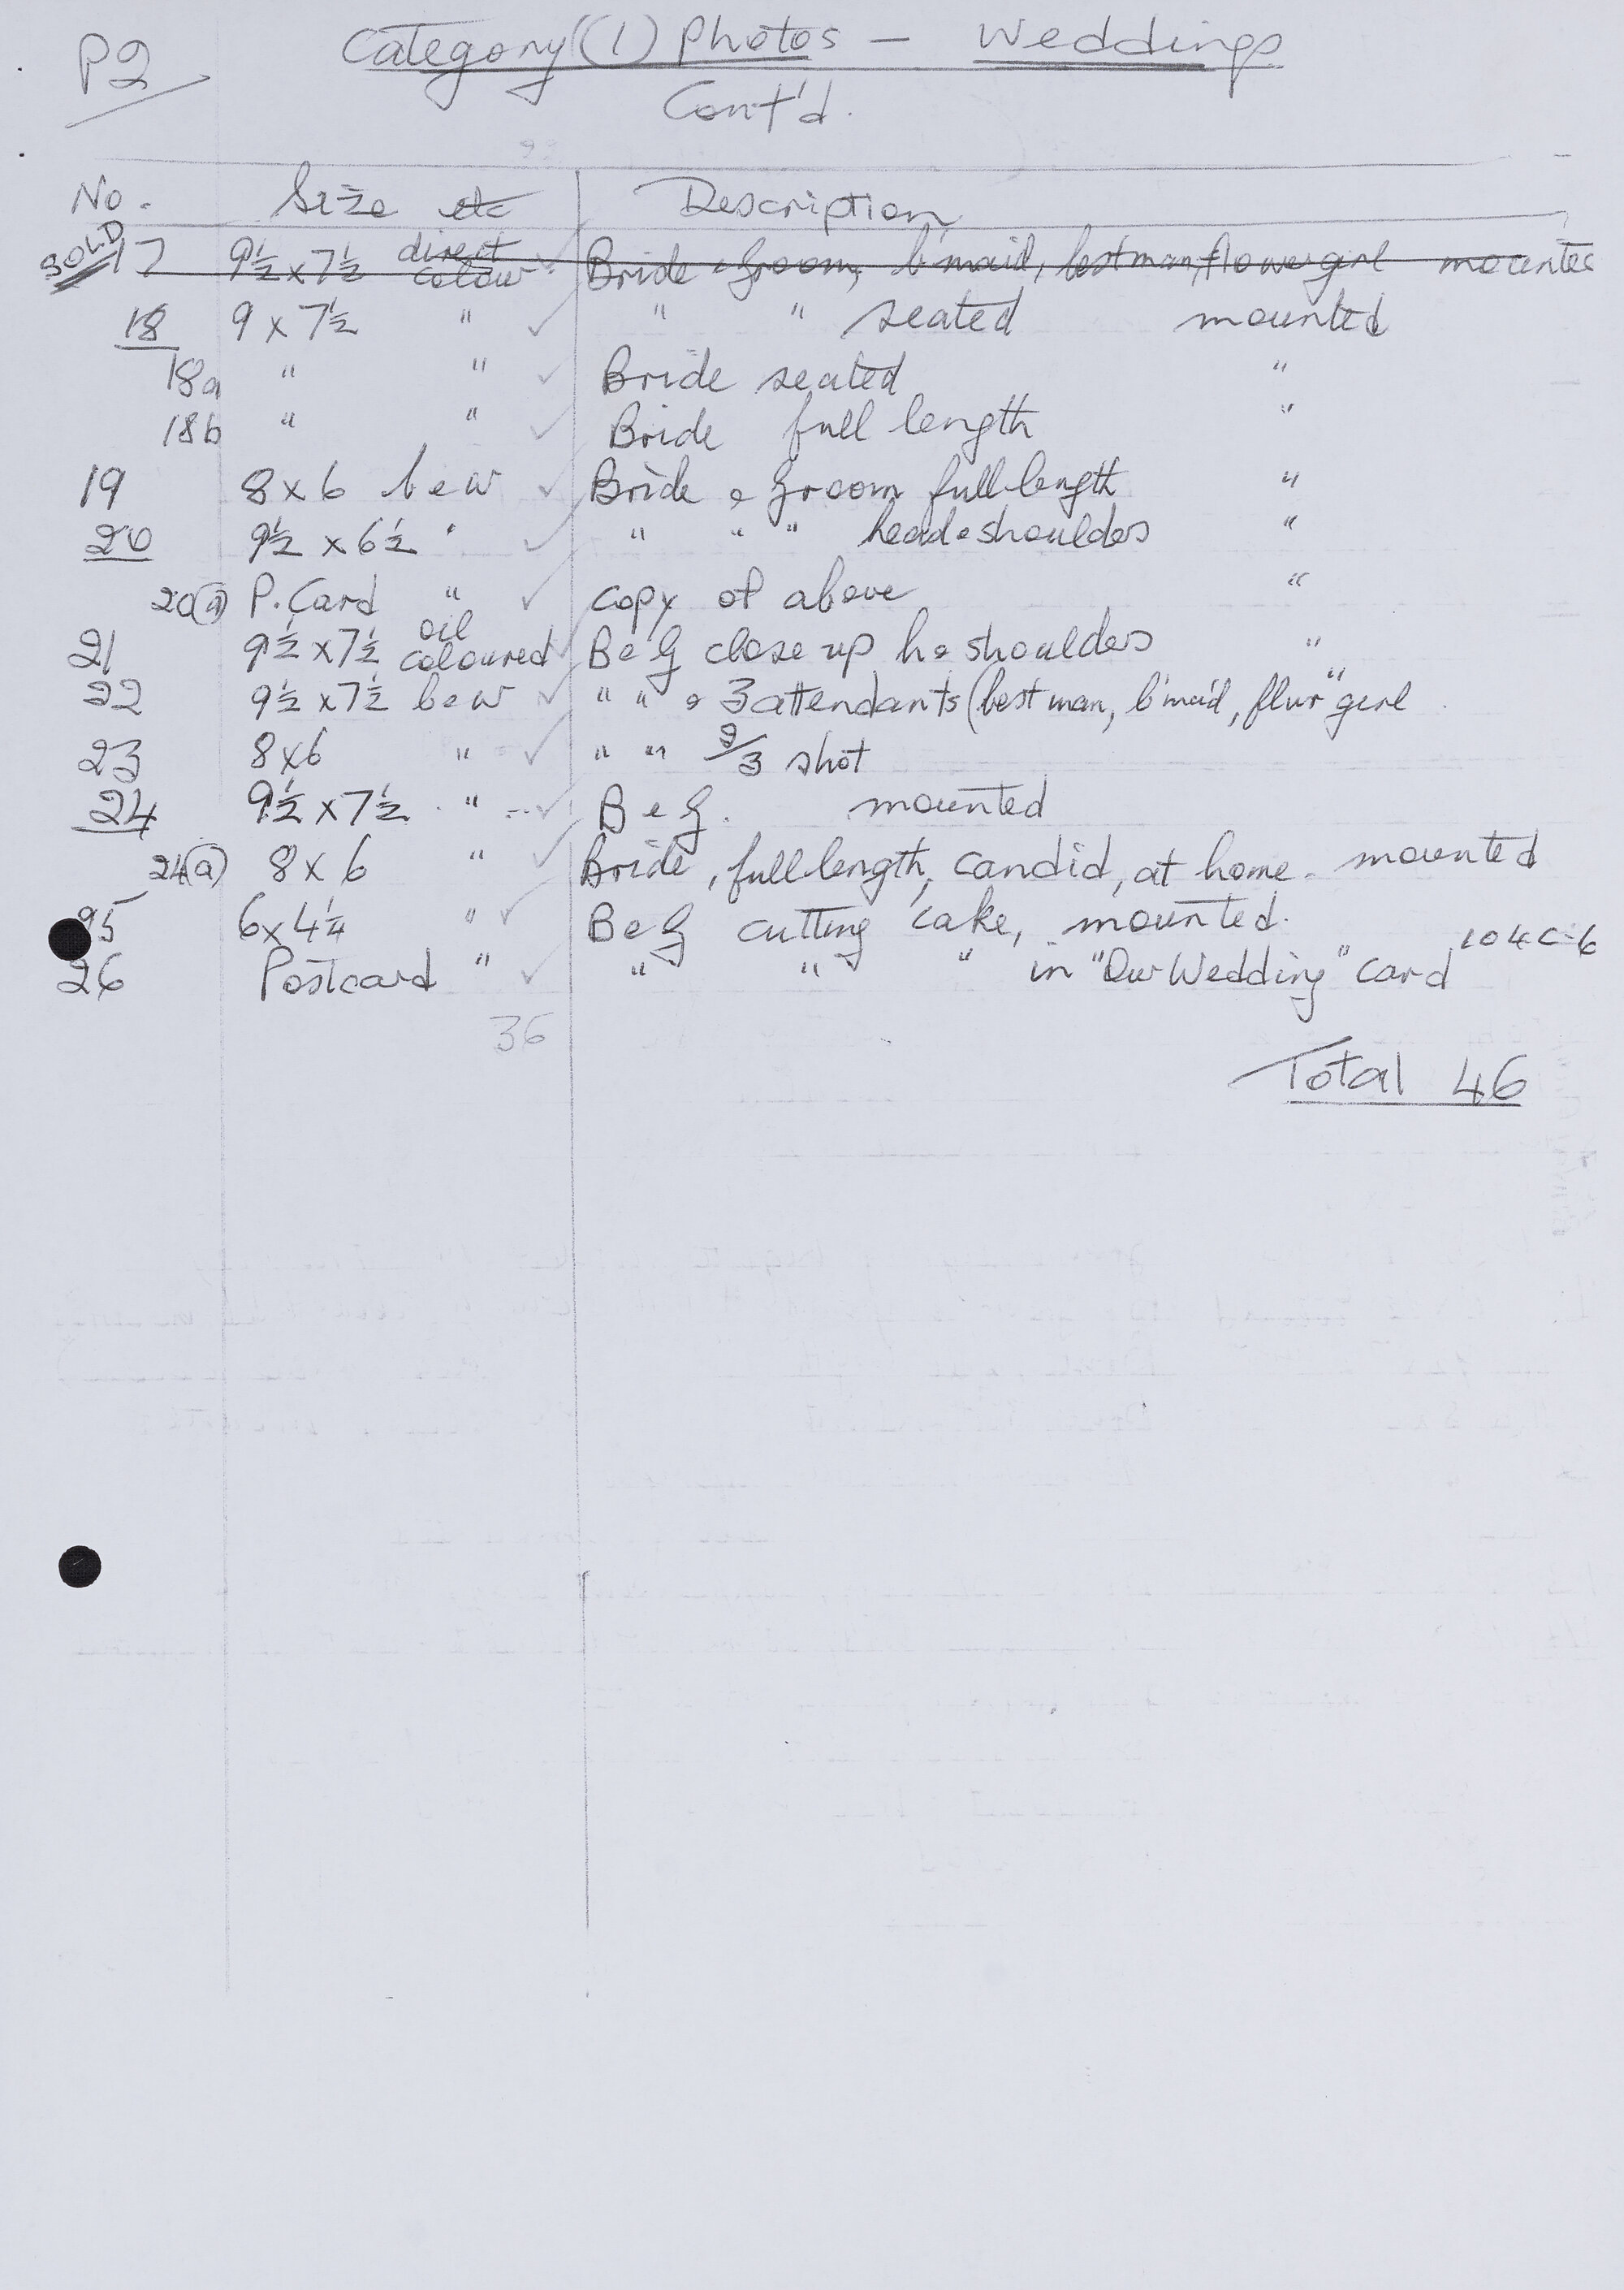 P2
Category (1) Photos - Weddings
Cont'd.
No. Size etc Description
SOLD
17 9½ x 7½ direct colour ✓ Bride & Groom, b'maid, bestman, flowergirl mounted
18 9 x 7½ " ✓ " " seated mounted
18a " " ✓ Bride seated "
18b " " ✓ Bride full length "
19 8x6 b & w ✓ Bride & Groom full length "
20 9½ x 6½ " ✓ " " " head & shoulders "
20(a) P. Card " ✓ copy of above "
21 9½ x 7½ oil coloured ✓ B & G close up h & shoulders "
22 9½ x 7½ b & w ✓ " " & 3 attendants (best man, b'maid, flwr girl "
23 8x6 " ✓ " " 2/3 shot
24 9½ x 7½ " ✓ B & G. mounted
24(a) 8 x 6 " ✓ Bride, full length, candid, at home. mounted
25 6 x 4¼ " ✓ B & G cutting cake, mounted.
26 Postcard " ✓ " " " in "Our Wedding" card 104C-6
36
Total 46